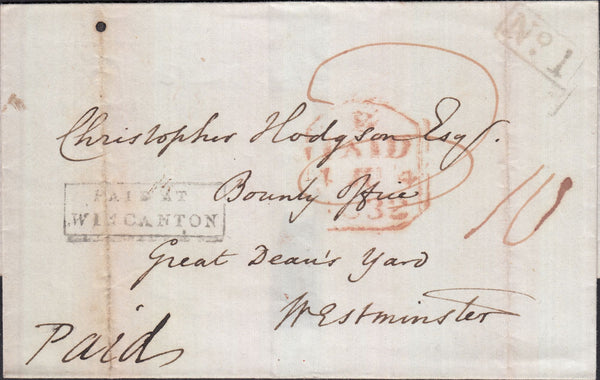 No. 1
Christopher Hodgson Esq.
PAID
1832
PAID AT
WINCANTON
Bounty Office
Great Dean's Yard
Westminster
Paid
10